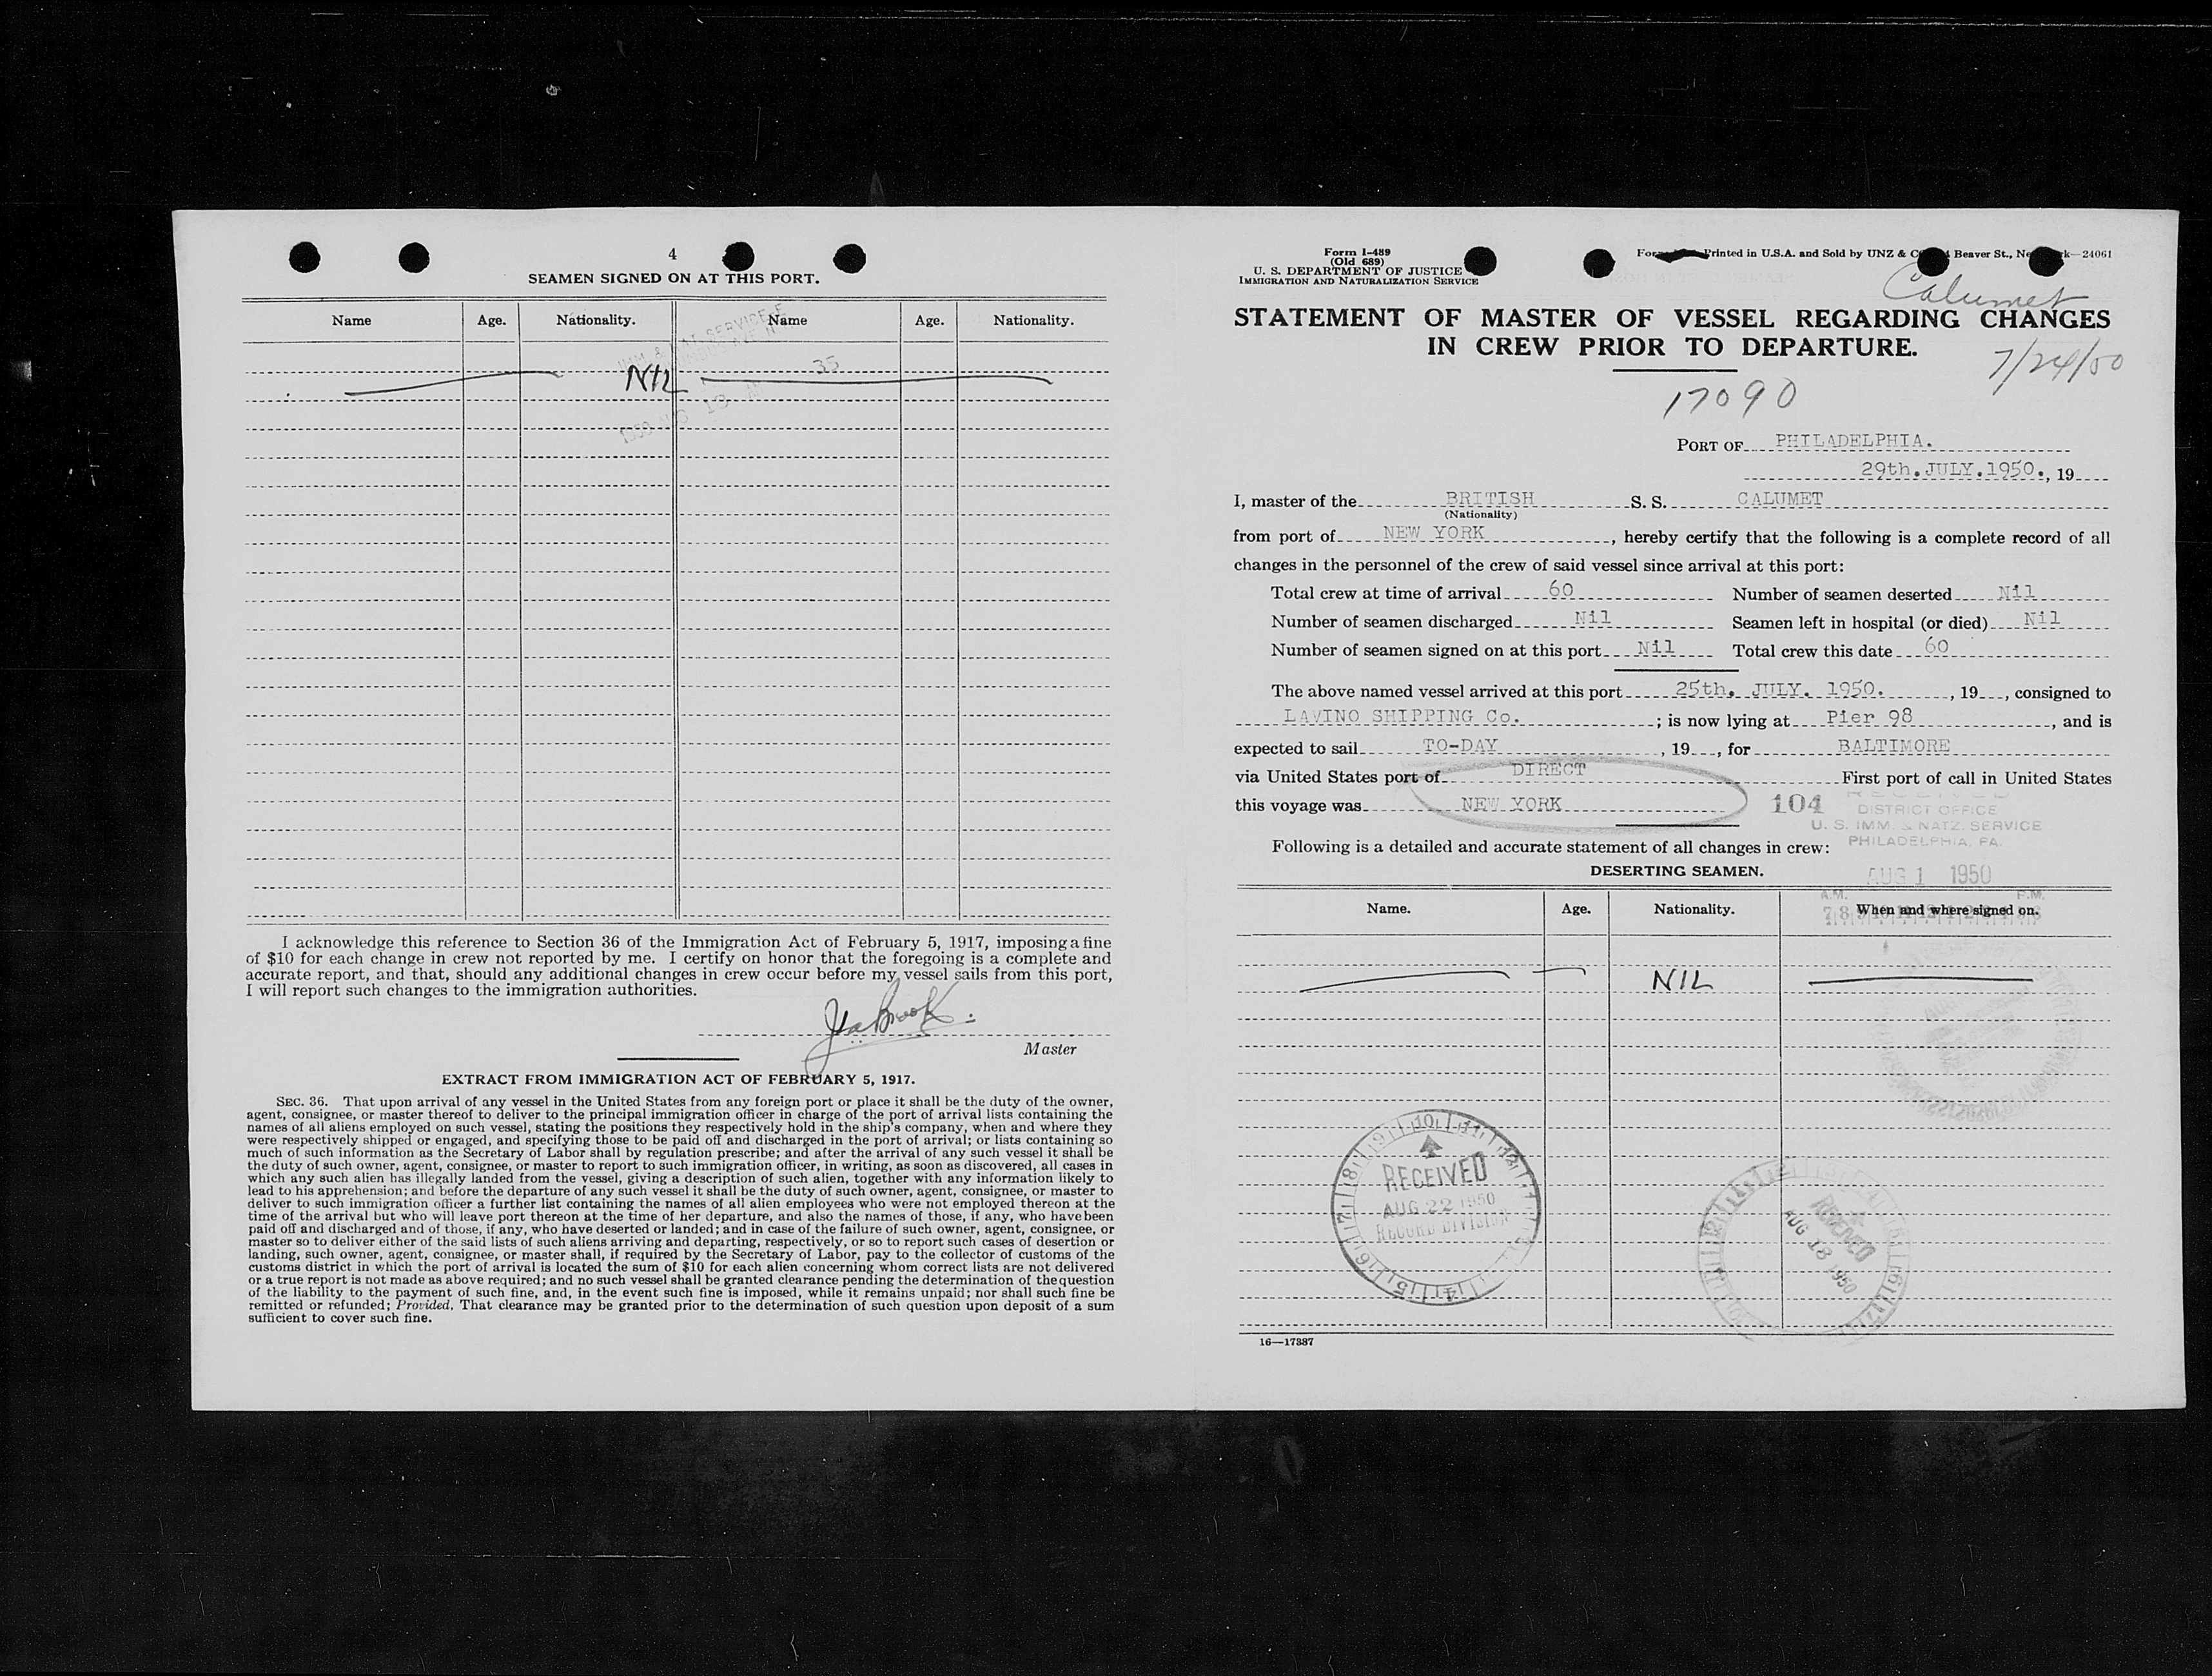 4
SEAMEN SIGNED ON AT THIS PORT.
Name Age. Nationality. Name Age. Nationality.
35
NIL
I acknowledge this reference to Section 36 of the Immigration Act of February 5, 1917, imposing a fine
of $10 for each change in crew not reported by me. I certify on honor that the foregoing is a complete and
accurate report, and that, should any additional changes in crew occur before my vessel sails from this port,
I will report such changes to the immigration authorities.
Master
EXTRACT FROM IMMIGRATION ACT OF FEBRUARY 5, 1917.
SEC. 36. That upon arrival of any vessel in the United States from any foreign port or place it shall be the duty of the owner,
agent, consignee, or master thereof to deliver to the principal immigration officer in charge of the port of arrival lists containing the
names of all aliens employed on such vessel, stating the positions they respectively hold in the ship's company, when and where they
were respectively shipped or engaged, and specifying those to be paid off and discharged in the port of arrival; or lists containing so
much of such information as the Secretary of Labor shall by regulation prescribe; and after the arrival of any such vessel it shall be
the duty of such owner, agent, consignee, or master to report to such immigration officer, in writing, as soon as discovered, all cases in
which any such alien has illegally landed from the vessel, giving a description of such alien, together with any information likely to
lead to his apprehension; and before the departure of any such vessel it shall be the duty of such owner, agent, consignee, or master to
deliver to such immigration officer a further list containing the names of all alien employees who were not employed thereon at the
time of the arrival but who will leave port thereon at the time of her departure, and also the names of those, if any, who have been
paid off and discharged and of those, if any, who have deserted or landed; and in case of the failure of such owner, agent, consignee, or
master so to deliver either of the said lists of such aliens arriving and departing, respectively, or so to report such cases of desertion or
landing, such owner, agent, consignee, or master shall, if required by the Secretary of Labor, pay to the collector of customs of the
customs district in which the port of arrival is located the sum of $10 for each alien concerning whom correct lists are not delivered
or a true report is not made as above required; and no such vessel shall be granted clearance pending the determination of the question
of the liability to the payment of such fine, and, in the event such fine is imposed, while it remains unpaid; nor shall such fine be
remitted or refunded; Provided, That clearance may be granted prior to the determination of such question upon deposit of a sum
sufficient to cover such fine.
Form I-489
(Old 689)
U. S. DEPARTMENT OF JUSTICE
IMMIGRATION AND NATURALIZATION SERVICE
Printed in U.S.A. and Sold by UNZ & Beaver St., 24061
Calumet
STATEMENT OF MASTER OF VESSEL REGARDING CHANGES
IN CREW PRIOR TO DEPARTURE.
7/24/50
17090
PORT OF PHILADELPHIA.
29th. JULY. 1950., 19
I, master of the BRITISH S. S. CALUMET
(Nationality)
from port of NEW YORK, hereby certify that the following is a complete record of all
changes in the personnel of the crew of said vessel since arrival at this port:
Total crew at time of arrival 60 Number of seamen deserted Nil
Number of seamen discharged Nil Seamen left in hospital (or died) Nil
Number of seamen signed on at this port Nil Total crew this date 60
The above named vessel arrived at this port 25th. JULY. 1950., 19, consigned to
LAVINO SHIPPING Co.; is now lying at Pier 98, and is
expected to sail TO-DAY, 19, for BALTIMORE
via United States port of DIRECT First port of call in United States
this voyage was NEW YORK 104
RECEIVED
DISTRICT OFFICE
U. S. IMM. & NATZ. SERVICE
PHILADELPHIA, PA.
Following is a detailed and accurate statement of all changes in crew:
DESERTING SEAMEN.
AUG 1 1950
A.M. P.M.
Name. Age. Nationality. When and where signed on.
NIL
RECEIVED
AUG 22 1950
RECORD DIVISION
RECEIVED
AUG 18 1950
16—17387